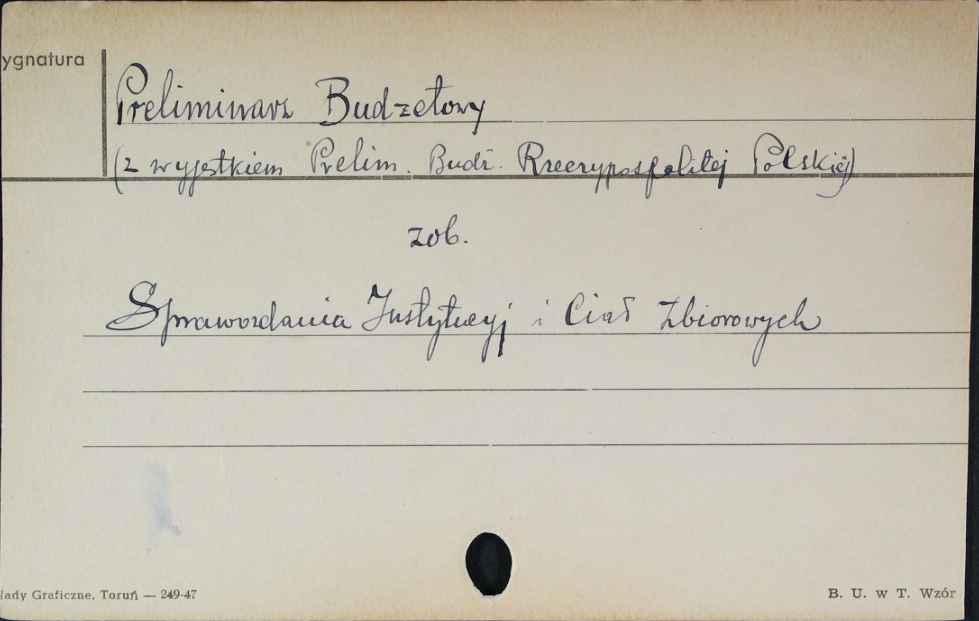 ygnatura
Preliminarz Budżetowy
(z wyjątkiem Prelim. Budż. Rzeczypospolitej Polskiej)
zob.
Sprawozdania Instytucyj i Ciał Zbiorowych
łady Graficzne, Toruń — 249-47
B. U. w T. Wzór